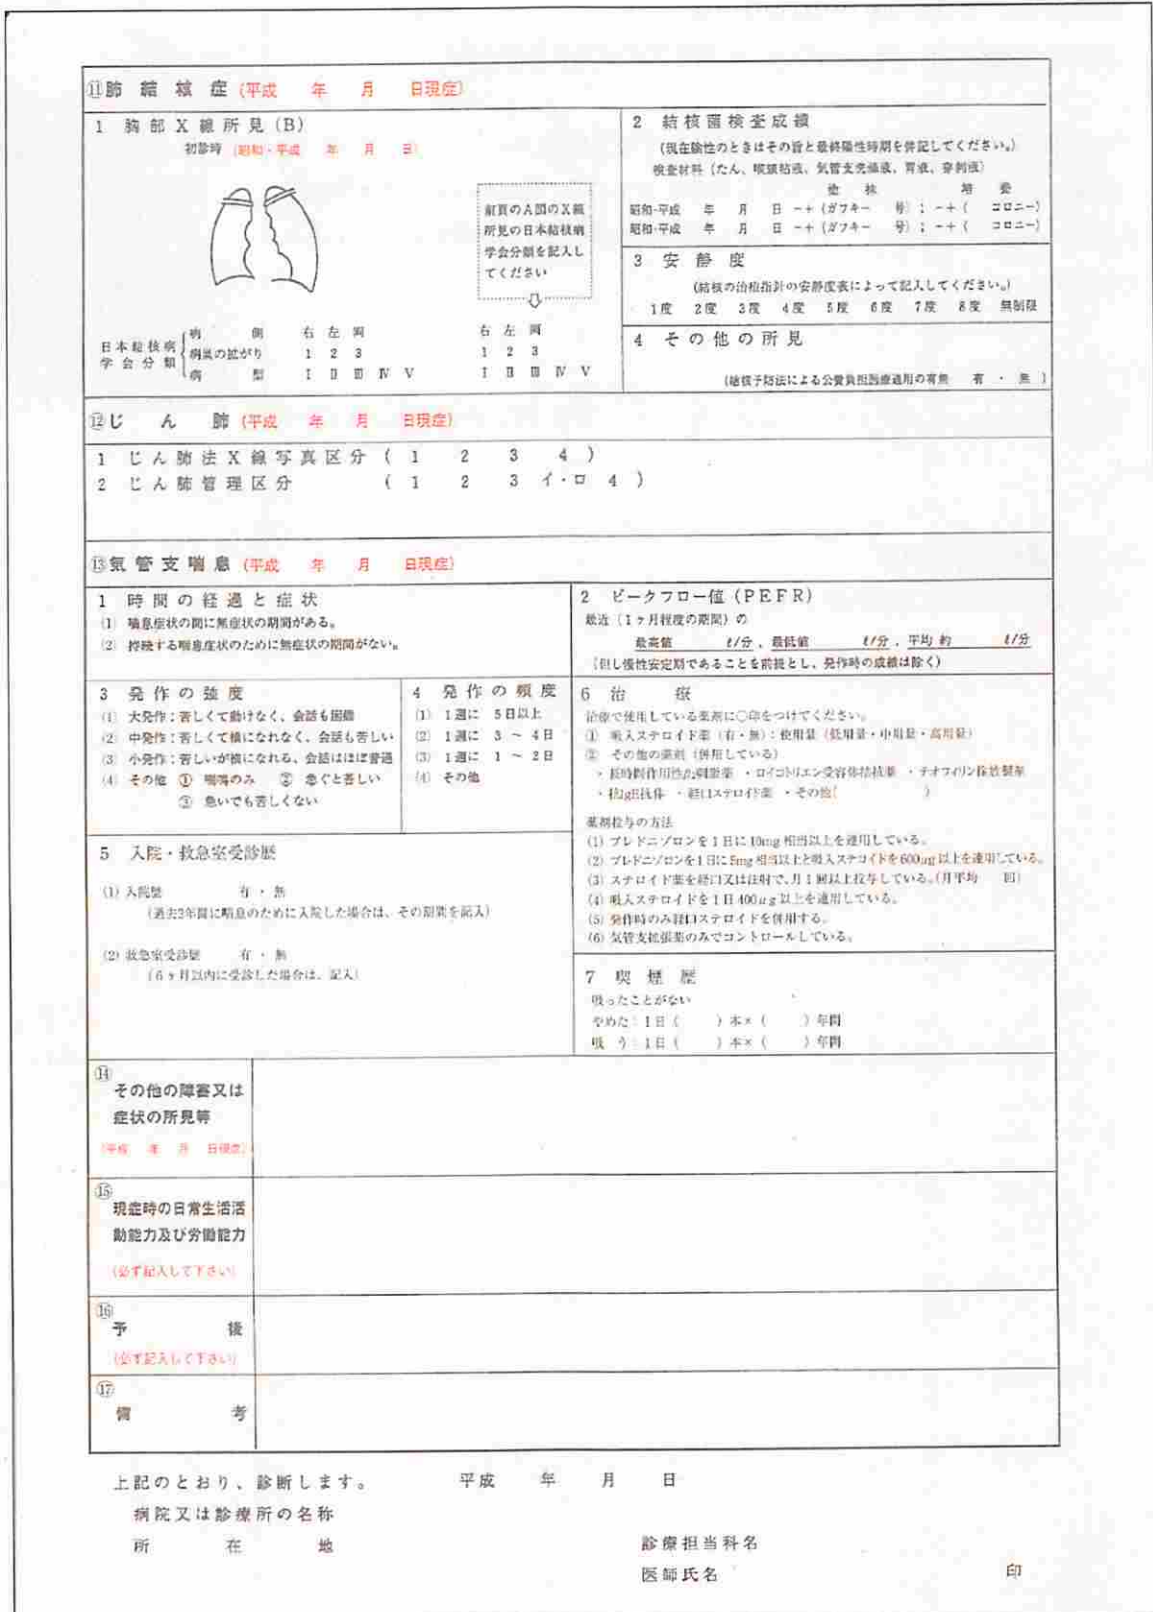 ⑪肺結核症(平成　年　月　日現症)
1 胸部X線所見(B)
初診時 (昭和・平成　年　月　日)
前頁のA図のX線
所見の日本結核病
学会分類を記入し
てください
日本結核病
学会分類
病側　右 左 両　右 左 両
病巣の拡がり　1 2 3　1 2 3
病型　Ⅰ Ⅱ Ⅲ Ⅳ Ⅴ　Ⅰ Ⅱ Ⅲ Ⅳ Ⅴ
2 結核菌検査成績
(現在陰性のときはその旨と最終陽性時期を併記してください。)
検査材料(たん、喉頭粘液、気管支洗滌液、胃液、穿刺液)
塗抹　培養
昭和・平成　年　月　日 −+(ガフキー　号); −+(　コロニー)
昭和・平成　年　月　日 −+(ガフキー　号); −+(　コロニー)
3 安静度
(結核の治療指針の安静度表によって記入してください。)
1度 2度 3度 4度 5度 6度 7度 8度 無制限
4 その他の所見
(結核予防法による公費負担医療適用の有無　有・無)
⑫じん肺(平成　年　月　日現症)
1 じん肺法X線写真区分(1 2 3 4)
2 じん肺管理区分(1 2 3 イ・ロ 4)
⑬気管支喘息(平成　年　月　日現症)
1 時間の経過と症状
(1) 喘息症状の間に無症状の期間がある。
(2) 持続する喘息症状のために無症状の期間がない。
2 ピークフロー値(PEFR)
最近(1ヶ月程度の期間)の
最高値　ℓ/分, 最低値　ℓ/分, 平均 約　ℓ/分
(但し慢性安定期であることを前提とし、発作時の成績は除く)
3 発作の強度
(1) 大発作：苦しくて動けなく、会話も困難
(2) 中発作：苦しくて横になれなく、会話も苦しい
(3) 小発作：苦しいが横になれる、会話はほぼ普通
(4) その他 ① 喘鳴のみ ② 急ぐと苦しい
③ 急いでも苦しくない
4 発作の頻度
(1) 1週に 5日以上
(2) 1週に 3～4日
(3) 1週に 1～2日
(4) その他
5 入院・救急室受診歴
(1) 入院歴　有・無
(過去3年間に喘息のために入院した場合は、その期間を記入)
(2) 救急室受診歴　有・無
(6ヶ月以内に受診した場合は、記入)
6 治療
治療で使用している薬剤に○印をつけてください。
① 吸入ステロイド薬(有・無)：使用量(低用量・中用量・高用量)
② その他の薬剤(併用している)
・長時間作用性β2刺激薬 ・ロイコトリエン受容体拮抗薬 ・テオフィリン徐放製薬
・抗IgE抗体 ・経口ステロイド薬 ・その他(　)
薬剤投与の方法
(1) プレドニゾロンを1日に10mg相当以上を連用している。
(2) プレドニゾロンを1日に5mg相当以上と吸入ステロイドを600μg以上を連用している。
(3) ステロイド薬を経口又は注射で、月1回以上投与している。(月平均　回)
(4) 吸入ステロイドを1日400μg以上を連用している。
(5) 発作時のみ経口ステロイドを併用する。
(6) 気管支拡張薬のみでコントロールしている。
7 喫煙歴
吸ったことがない
やめた：1日(　)本×(　)年間
吸う：1日(　)本×(　)年間
⑭
その他の障害又は
症状の所見等
(平成　年　月　日現症)
⑮
現症時の日常生活活
動能力及び労働能力
(必ず記入して下さい)
⑯
予後
(必ず記入して下さい)
⑰
備考
上記のとおり、診断します。　平成　年　月　日
病院又は診療所の名称
所在地　診療担当科名
医師氏名　印